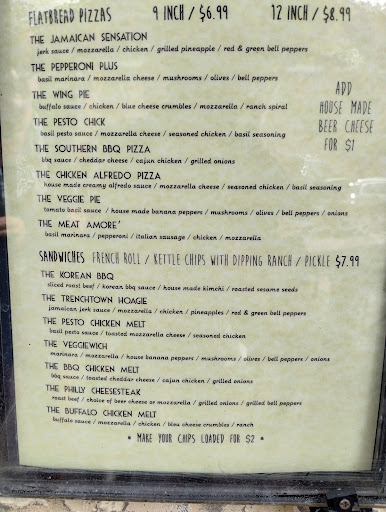 FLATBREAD PIZZAS 9 INCH / $6.99 12 INCH / $8.99
THE JAMAICAN SENSATION
jerk sauce / mozzarella / chicken / grilled pineapple / red & green bell peppers
THE PEPPERONI PLUS
basil marinara / mozzarella cheese / mushrooms / olives / bell peppers
THE WING PIE
buffalo sauce / chicken / blue cheese crumbles / mozzarella / ranch spiral
THE PESTO CHICK
basil pesto sauce / mozzarella cheese / seasoned chicken / basil seasoning
THE SOUTHERN BBQ PIZZA
bbq sauce / cheddar cheese / cajun chicken / grilled onions
THE CHICKEN ALFREDO PIZZA
house made creamy alfredo sauce / mozzarella cheese / seasoned chicken / basil seasoning
THE VEGGIE PIE
tomato basil sauce / house made banana peppers / mushrooms / olives / bell peppers / onions
THE MEAT AMORE'
basil marinara / pepperoni / italian sausage / chicken / mozzarella
ADD
HOUSE MADE
BEER CHEESE
FOR $1
SANDWICHES FRENCH ROLL / KETTLE CHIPS WITH DIPPING RANCH / PICKLE $7.99
THE KOREAN BBQ
sliced roast beef / korean bbq sauce / house made kimchi / roasted sesame seeds
THE TRENCHTOWN HOAGIE
jamaican jerk sauce / mozzarella / chicken / pineapples / red & green bell peppers
THE PESTO CHICKEN MELT
basil pesto sauce / toasted mozzarella cheese / seasoned chicken
THE VEGGIEWICH
marinara / mozzarella / house banana peppers / mushrooms / olives / bell peppers / onions
THE BBQ CHICKEN MELT
bbq sauce / toasted cheddar cheese / cajun chicken / grilled onions
THE PHILLY CHEESESTEAK
roast beef / choice of beer cheese or mozzarella / grilled onions / grilled bell peppers
THE BUFFALO CHICKEN MELT
buffalo sauce / mozzarella / chicken / bleu cheese crumbles / ranch
• MAKE YOUR CHIPS LOADED FOR $2 •